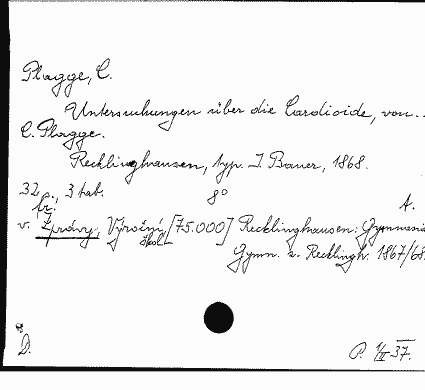 Plagge, C.
Untersuchungen über die Cardioide, von...
C. Plagge.
Recklinghausen, typ. I. Bauer, 1868.
32 , 3 tab. 8°
A.
v. Zprávy, Výroční škol. [75.000] Recklinghausen: Gymnasi
Gymn. z. Recklingh. 1867/68.
D.
P. 1/II 37.